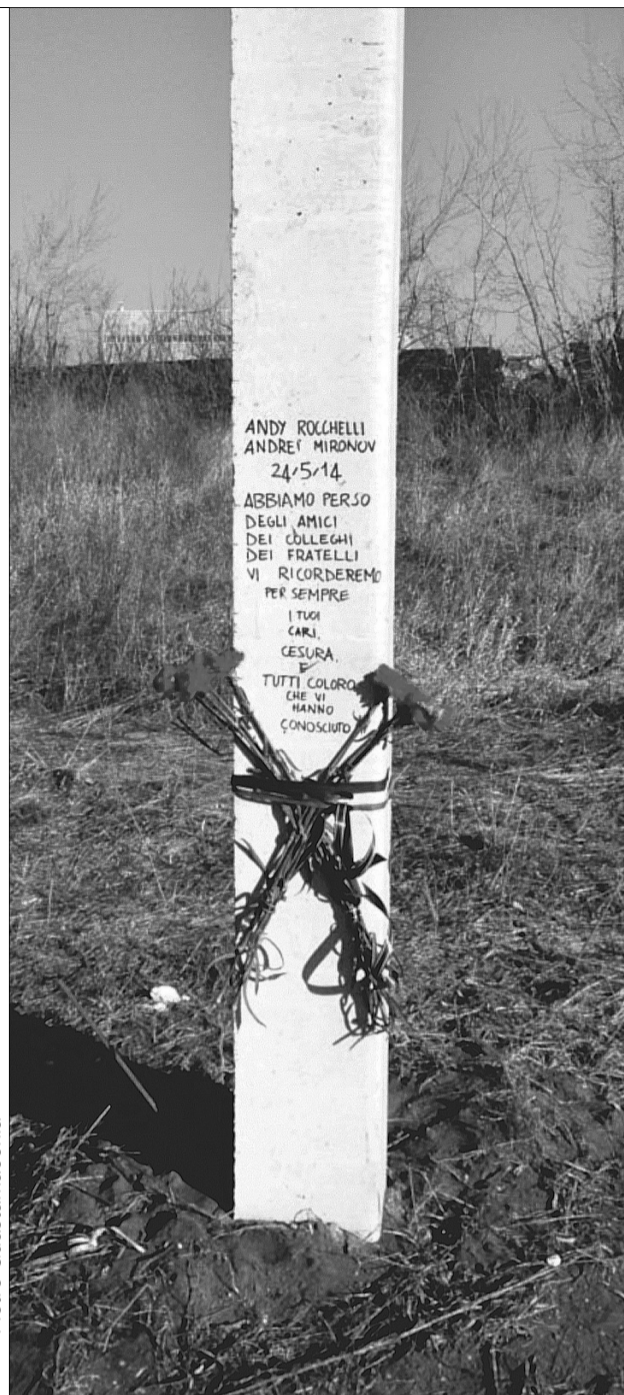 ANDY ROCCHELLI
ANDREÍ MIRONOV
24/5/14
ABBIAMO PERSO
DEGLI AMICI
DEI COLLEGHI
DEI FRATELLI
VI RICORDEREMO
PER SEMPRE
I TUOI
CARI,
CESURA,
E
TUTTI COLORO
CHE VI
HANNO
CONOSCIUTO